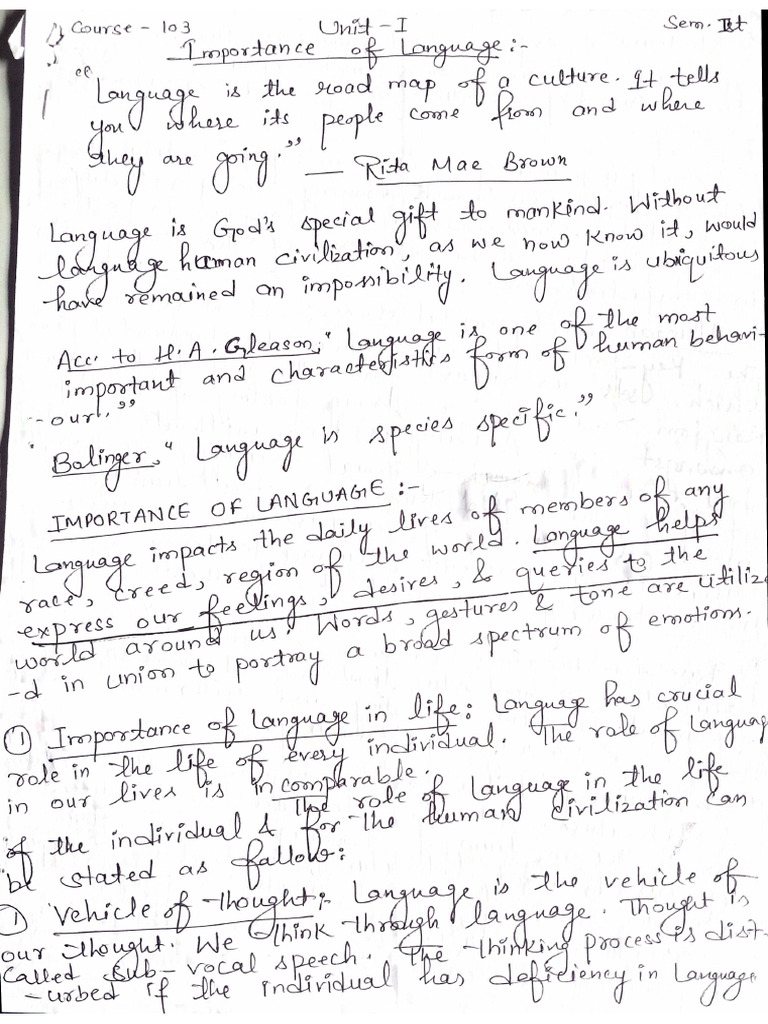 Course - 103 Unit - I Sem. Ist
Importance of Language :-
"Language is the road map of a culture. It tells
you where its people come from and where
they are going." — Rita Mae Brown
Language is God's special gift to mankind. Without
language human civilization, as we now know it, would
have remained an impossibility. Language is ubiquitous
Acc. to H. A. Gleason, "Language is one of the most
important and characteristics form of human behavi-
-our."
Bolinger, "Language is species specific."
IMPORTANCE OF LANGUAGE :-
Language impacts the daily lives of members of any
race, creed, region of the world. Language helps
express our feelings, desires, & queries to the
world around us. Words, gestures & tone are utiliz
-d in union to portray a broad spectrum of emotions.
① Importance of Language in life: Language has crucial
role in the life of every individual. The role of Languag
in our lives is incomparable.
The role of Language in the life
of the individual & for the human civilization can
be stated as follow:
1) Vehicle of thought:- Language is the vehicle of
our thought. We think through language. Thought is
called sub-vocal speech. The thinking process is dist-
-urbed if the individual has deficiency in Language